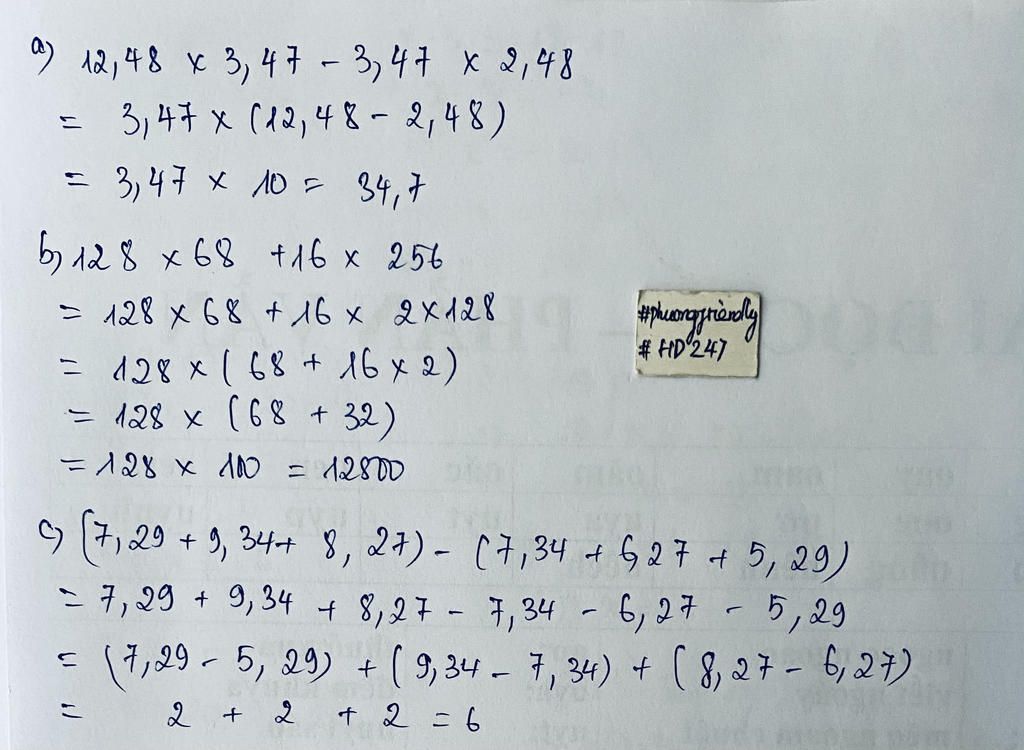 a) 12,48 x 3,47 - 3,47 x 2,48
= 3,47 x (12,48 - 2,48)
= 3,47 x 10 = 34,7
b) 128 x 68 + 16 x 256
= 128 x 68 + 16 x 2 x 128
= 128 x (68 + 16 x 2)
= 128 x (68 + 32)
= 128 x 100 = 12800
c) (7,29 + 9,34 + 8,27) - (7,34 + 6,27 + 5,29)
= 7,29 + 9,34 + 8,27 - 7,34 - 6,27 - 5,29
= (7,29 - 5,29) + (9,34 - 7,34) + (8,27 - 6,27)
= 2 + 2 + 2 = 6
#phuongfriendly
#HD247